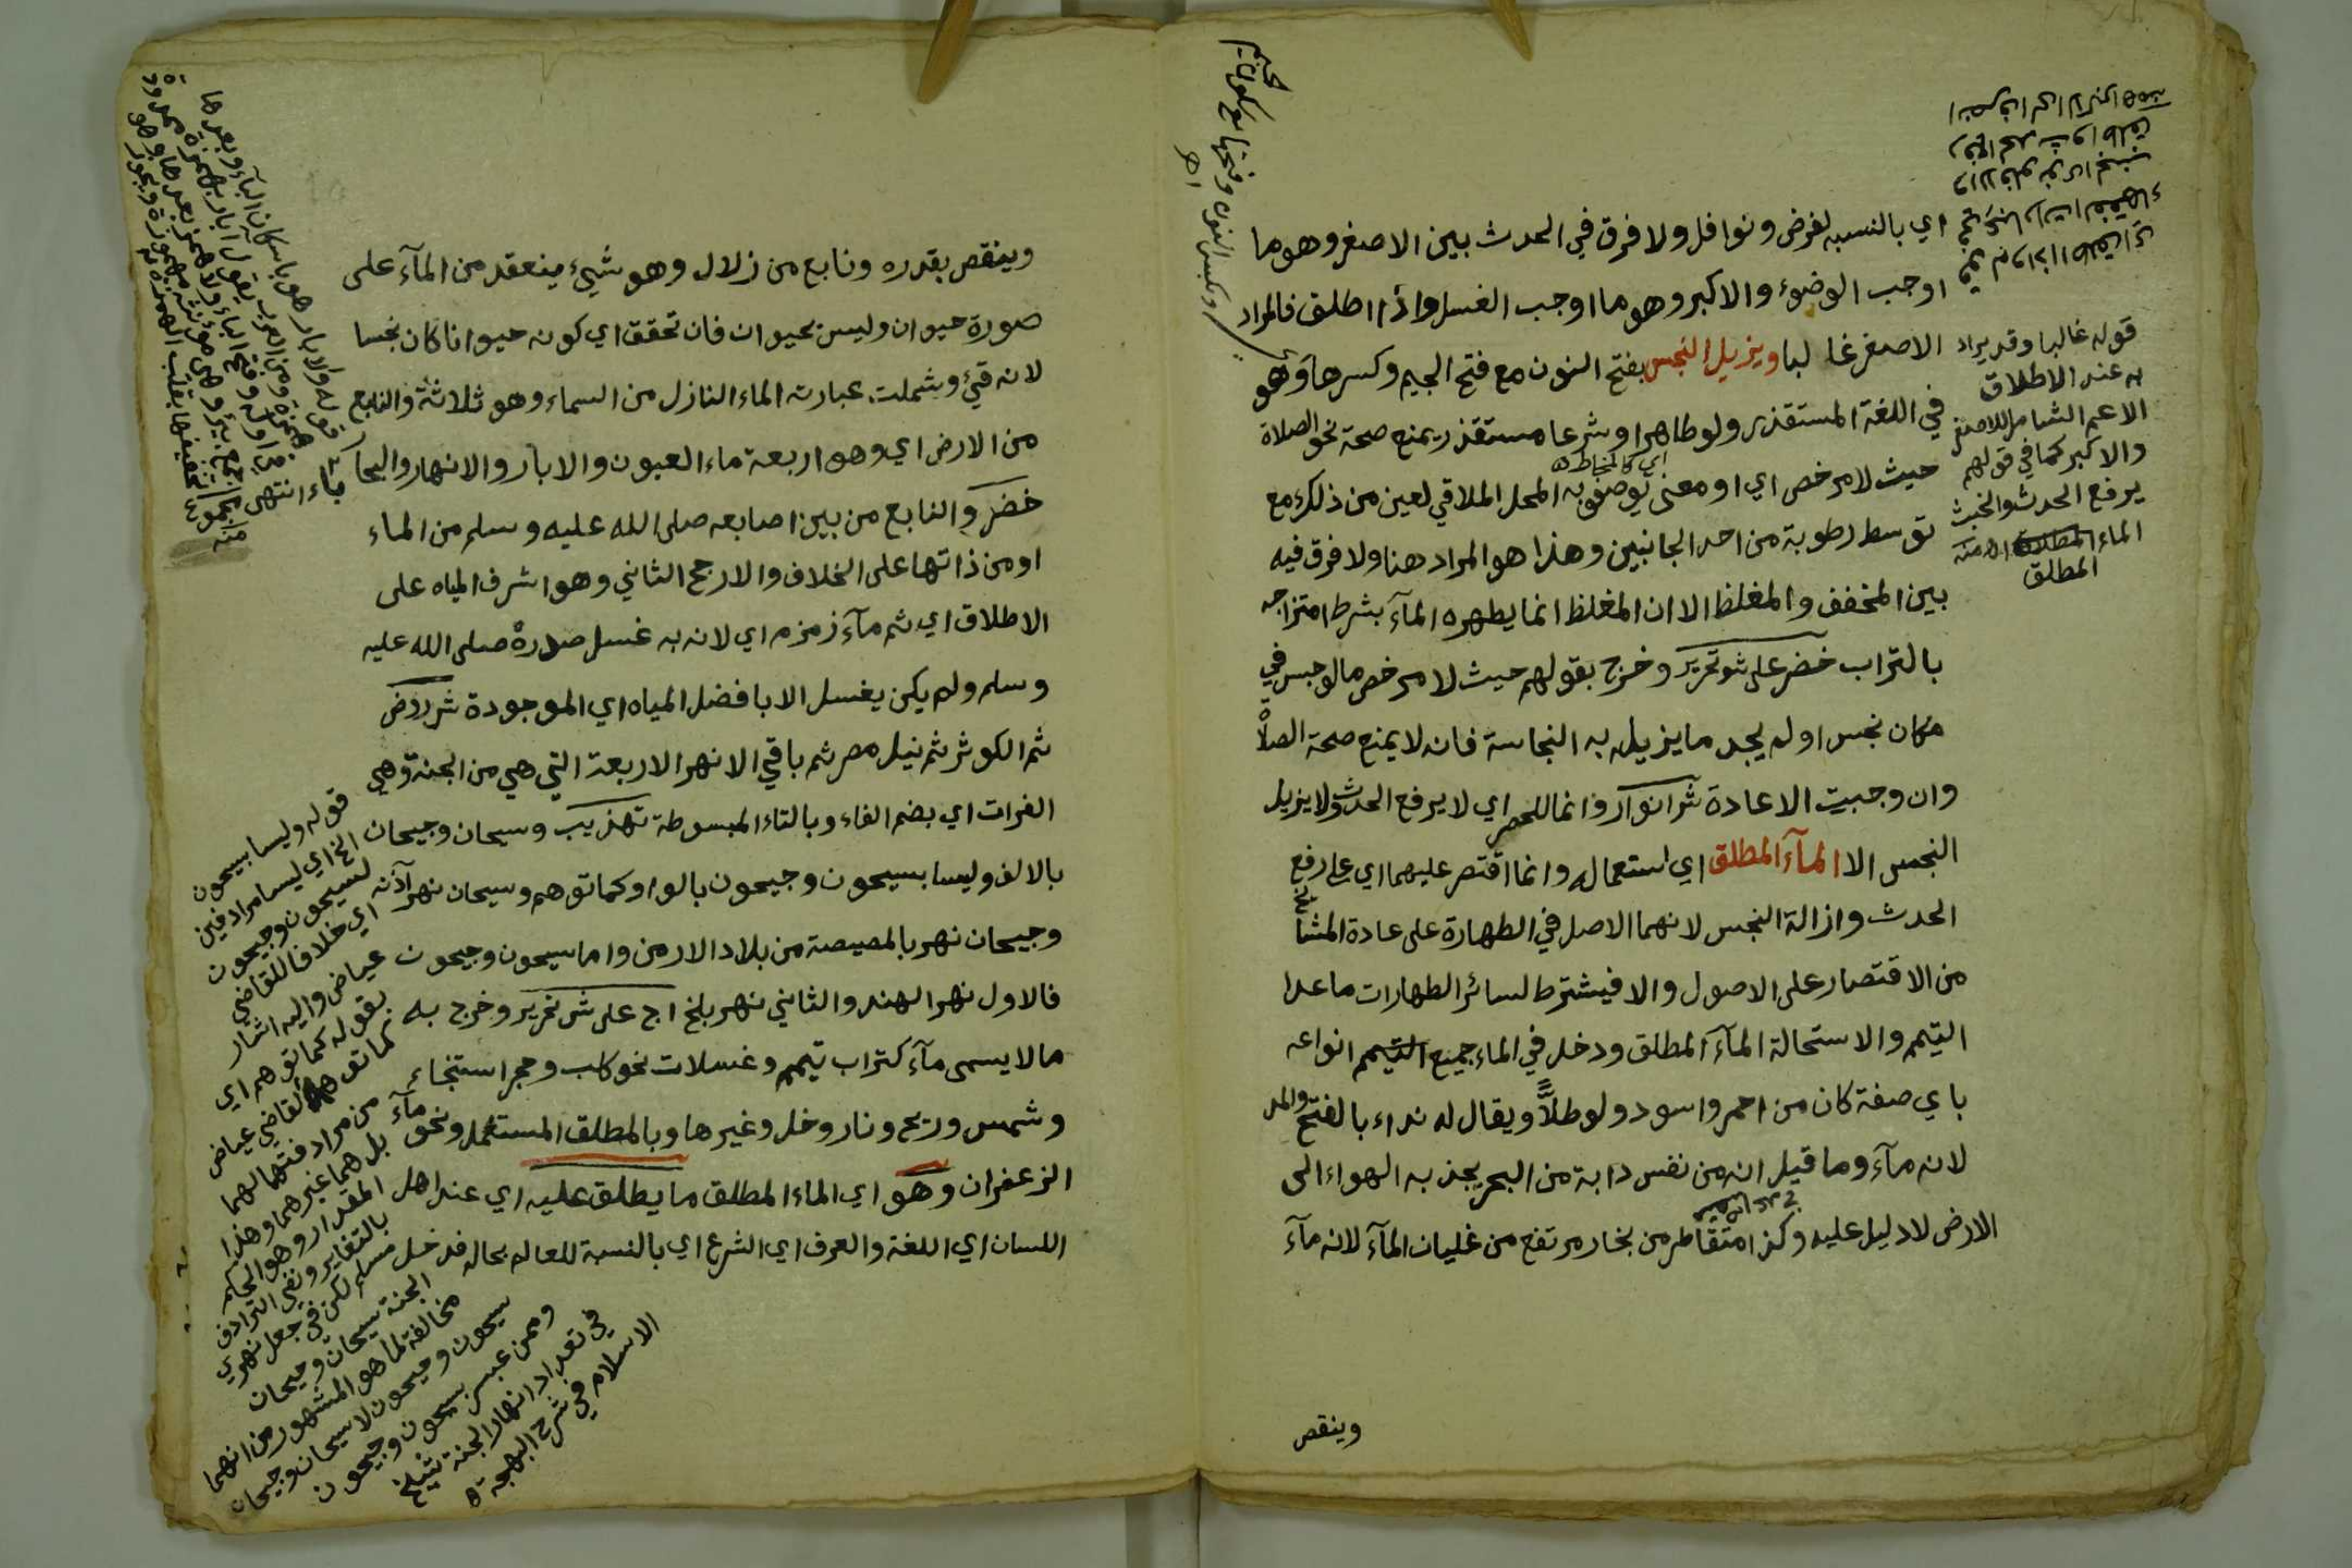 اي بالنسبه لفرض ونوافل ولا فرق في الحدث بين الاصغر وهو ما
اوجب الوضوء والاكبر وهو ما اوجب الغسل واذا اطلق فالمراد
الاصغر غا لبا ويزيل النجس بفتح النون مع فتح الجيم وكسرها وهو
في اللغة المستقذر ولو طاهرا وشرعا مستقذر يمنع صحة نحو الصلاة
اي كالمخاط ه
حيث لا مرخص اي او معنى يوصف به المحل الملاقي لعين من ذلك مع
توسط رطوبة من احد الجانبين وهذا هو المراد هنا ولا فرق فيه
بين المخفف والمغلظ الا ان المغلظ انما يطهره المآء بشرط امتزاجه
بالتراب خضر على شو تحرير وخرج بقولهم حيث لا مرخص ما لو حبس في
مكان نجس او لم يجد ما يزيل به النجاسة فانه لا يمنع صحة الصلاة
وان وجبت الاعادة شر انوار وانما للحصر اي لا يرفع الحدث ولا يزيل
النجس الا المآء المطلق اي استعماله وانما اقتصر عليهما اي على رفع
الحدث وازالة النجس لانهما الاصل في الطهارة على عادة المشايخ
من الاقتصار على الاصول والا فيشترط لسائر الطهارات ما عدا
التيمم والاستحالة المآء المطلق ودخل في الماء جميع التيمم انواعه
باي صفة كان من احمر واسود ولو طلا ويقال له نداء بالفتح والمد
لانه مآء وما قيل انه من نفس دابة من البحر يجذ به الهواء الى
الارض لا دليل عليه وكذا متقاطر من بخار مرتفع من غليان المآء لانه مآء
وينقص
قوله غالبا وقد يراد
به عند الاطلاق
الاعم الشامل للاصغر
والاكبر كما في قولهم
يرفع الحدث والخبث
الماء المطلق اه منه
المطلق
وبكسر النون وفتحها مع سكون الجيم
اه
وينقص بقدره ونابع من زلال وهو شيء ينعقد من المآء على
صورة حيوان وليس بحيوان فان تحقق اي كونه حيوانا كان نجسا
لانه قيء وشملت عبارته الماء النازل من السماء وهو ثلاثة والنابع
من الارض اي وهو اربعة ماء العيون والابار والانهار والبحار
خضر والنابع من بين اصابعه صلى الله عليه وسلم من الماء
او من ذاتها على الخلاف والارجح الثاني وهو اشرف المياه على
الاطلاق اي ثم مآء زمزم اي لانه به غسل صدره صلى الله عليه
وسلم ولم يكن يغسل الا بافضل المياه اي الموجودة شر روض
ثم الكوثر ثم نيل مصر ثم باقي الانهر الاربعة التي هي من الجنة وهي
الفرات اي بضم الفاء وبالتاء المبسوطة تهذيب وسيحان وجيحان
بالالف وليسا بسيحون وجيحون بالواو كما توهم وسيحان نهر آذنه
وجيحان نهر بالمصيصة من بلاد الارمن واما سيحون وجيحون
فالاول نهر الهند والثاني نهر بلخ اج على شر تحرير وخرج به
مالا يسمى مآء كتراب تيمم وغسلات نحو كلب وحجر استنجاء
وشمس وريح ونار وخل وغيرها وبالمطلق المستعمل ونحو مآء
الزعفران وهو اي الماء المطلق ما يطلق عليه اي عند اهل
اللسان اي اللغة والعرف اي الشرع اي بالنسبة للعالم بحاله فدخل
قوله وليسا بسيحون
الخ اي ليسا مرادفين
لسيحون وجيحون
اي خلافا للقاضي
عياض واليه اشار
بقوله كما توهم اي
كما توهم القاضي عياض
من مرادفتهما لهما
بل هما غيرهما وهذا
المقدار وهو الحكم
بالتغاير ونفي الترادف
مسلم لكن في جعل نهري
الجنة سيحان وجيحان
مخالفة لما هو المشهور من انهما
سيحون وجيحون لا سيحان وجيحان
وممن عبر بسيحون وجيحون
في تعداد انهار الجنة شيخ
الاسلام في شرح البهجة ه